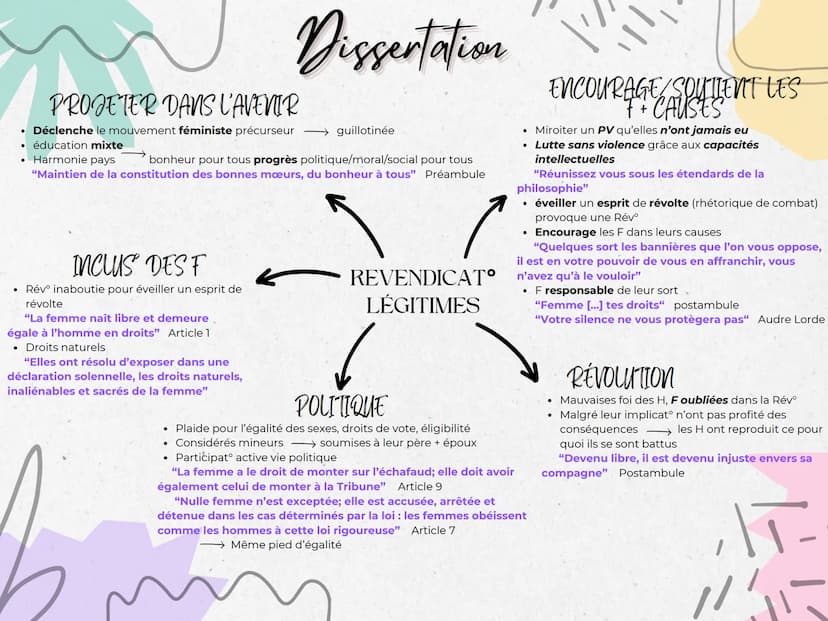 Dissertation
PROJETER DANS L'AVENIR
• Déclenche le mouvement féministe précurseur → guillotinée
• éducation mixte
• Harmonie pays → bonheur pour tous progrès politique/moral/social pour tous
“Maintien de la constitution des bonnes mœurs, du bonheur à tous” Préambule
ENCOURAGE/SOUTIENT LES
F + CAUSES
• Miroiter un PV qu’elles n’ont jamais eu
• Lutte sans violence grâce aux capacités
intellectuelles
“Réunissez vous sous les étendards de la
philosophie”
• éveiller un esprit de révolte (rhétorique de combat)
provoque une Rév°
• Encourage les F dans leurs causes
“Quelques sort les bannières que l’on vous oppose,
il est en votre pouvoir de vous en affranchir, vous
n’avez qu’à le vouloir”
• F responsable de leur sort
“Femme [...] tes droits“ postambule
“Votre silence ne vous protègera pas“ Audre Lorde
INCLUS° DES F
• Rév° inaboutie pour éveiller un esprit de
révolte
“La femme nait libre et demeure
égale à l’homme en droits” Article 1
• Droits naturels
“Elles ont résolu d’exposer dans une
déclaration solennelle, les droits naturels,
inaliénables et sacrés de la femme”
REVENDICAT°
LÉGITIMES
POLITIQUE
• Plaide pour l’égalité des sexes, droits de vote, éligibilité
• Considérés mineurs → soumises à leur père + époux
• Participat° active vie politique
“La femme a le droit de monter sur l’échafaud; elle doit avoir
également celui de monter à la Tribune” Article 9
“Nulle femme n’est exceptée; elle est accusée, arrêtée et
détenue dans les cas déterminés par la loi : les femmes obéissent
comme les hommes à cette loi rigoureuse” Article 7
→ Même pied d’égalité
RÉVOLUTION
• Mauvaises foi des H, F oubliées dans la Rév°
• Malgré leur implicat° n’ont pas profité des
conséquences → les H ont reproduit ce pour
quoi ils se sont battus
“Devenu libre, il est devenu injuste envers sa
compagne” Postambule